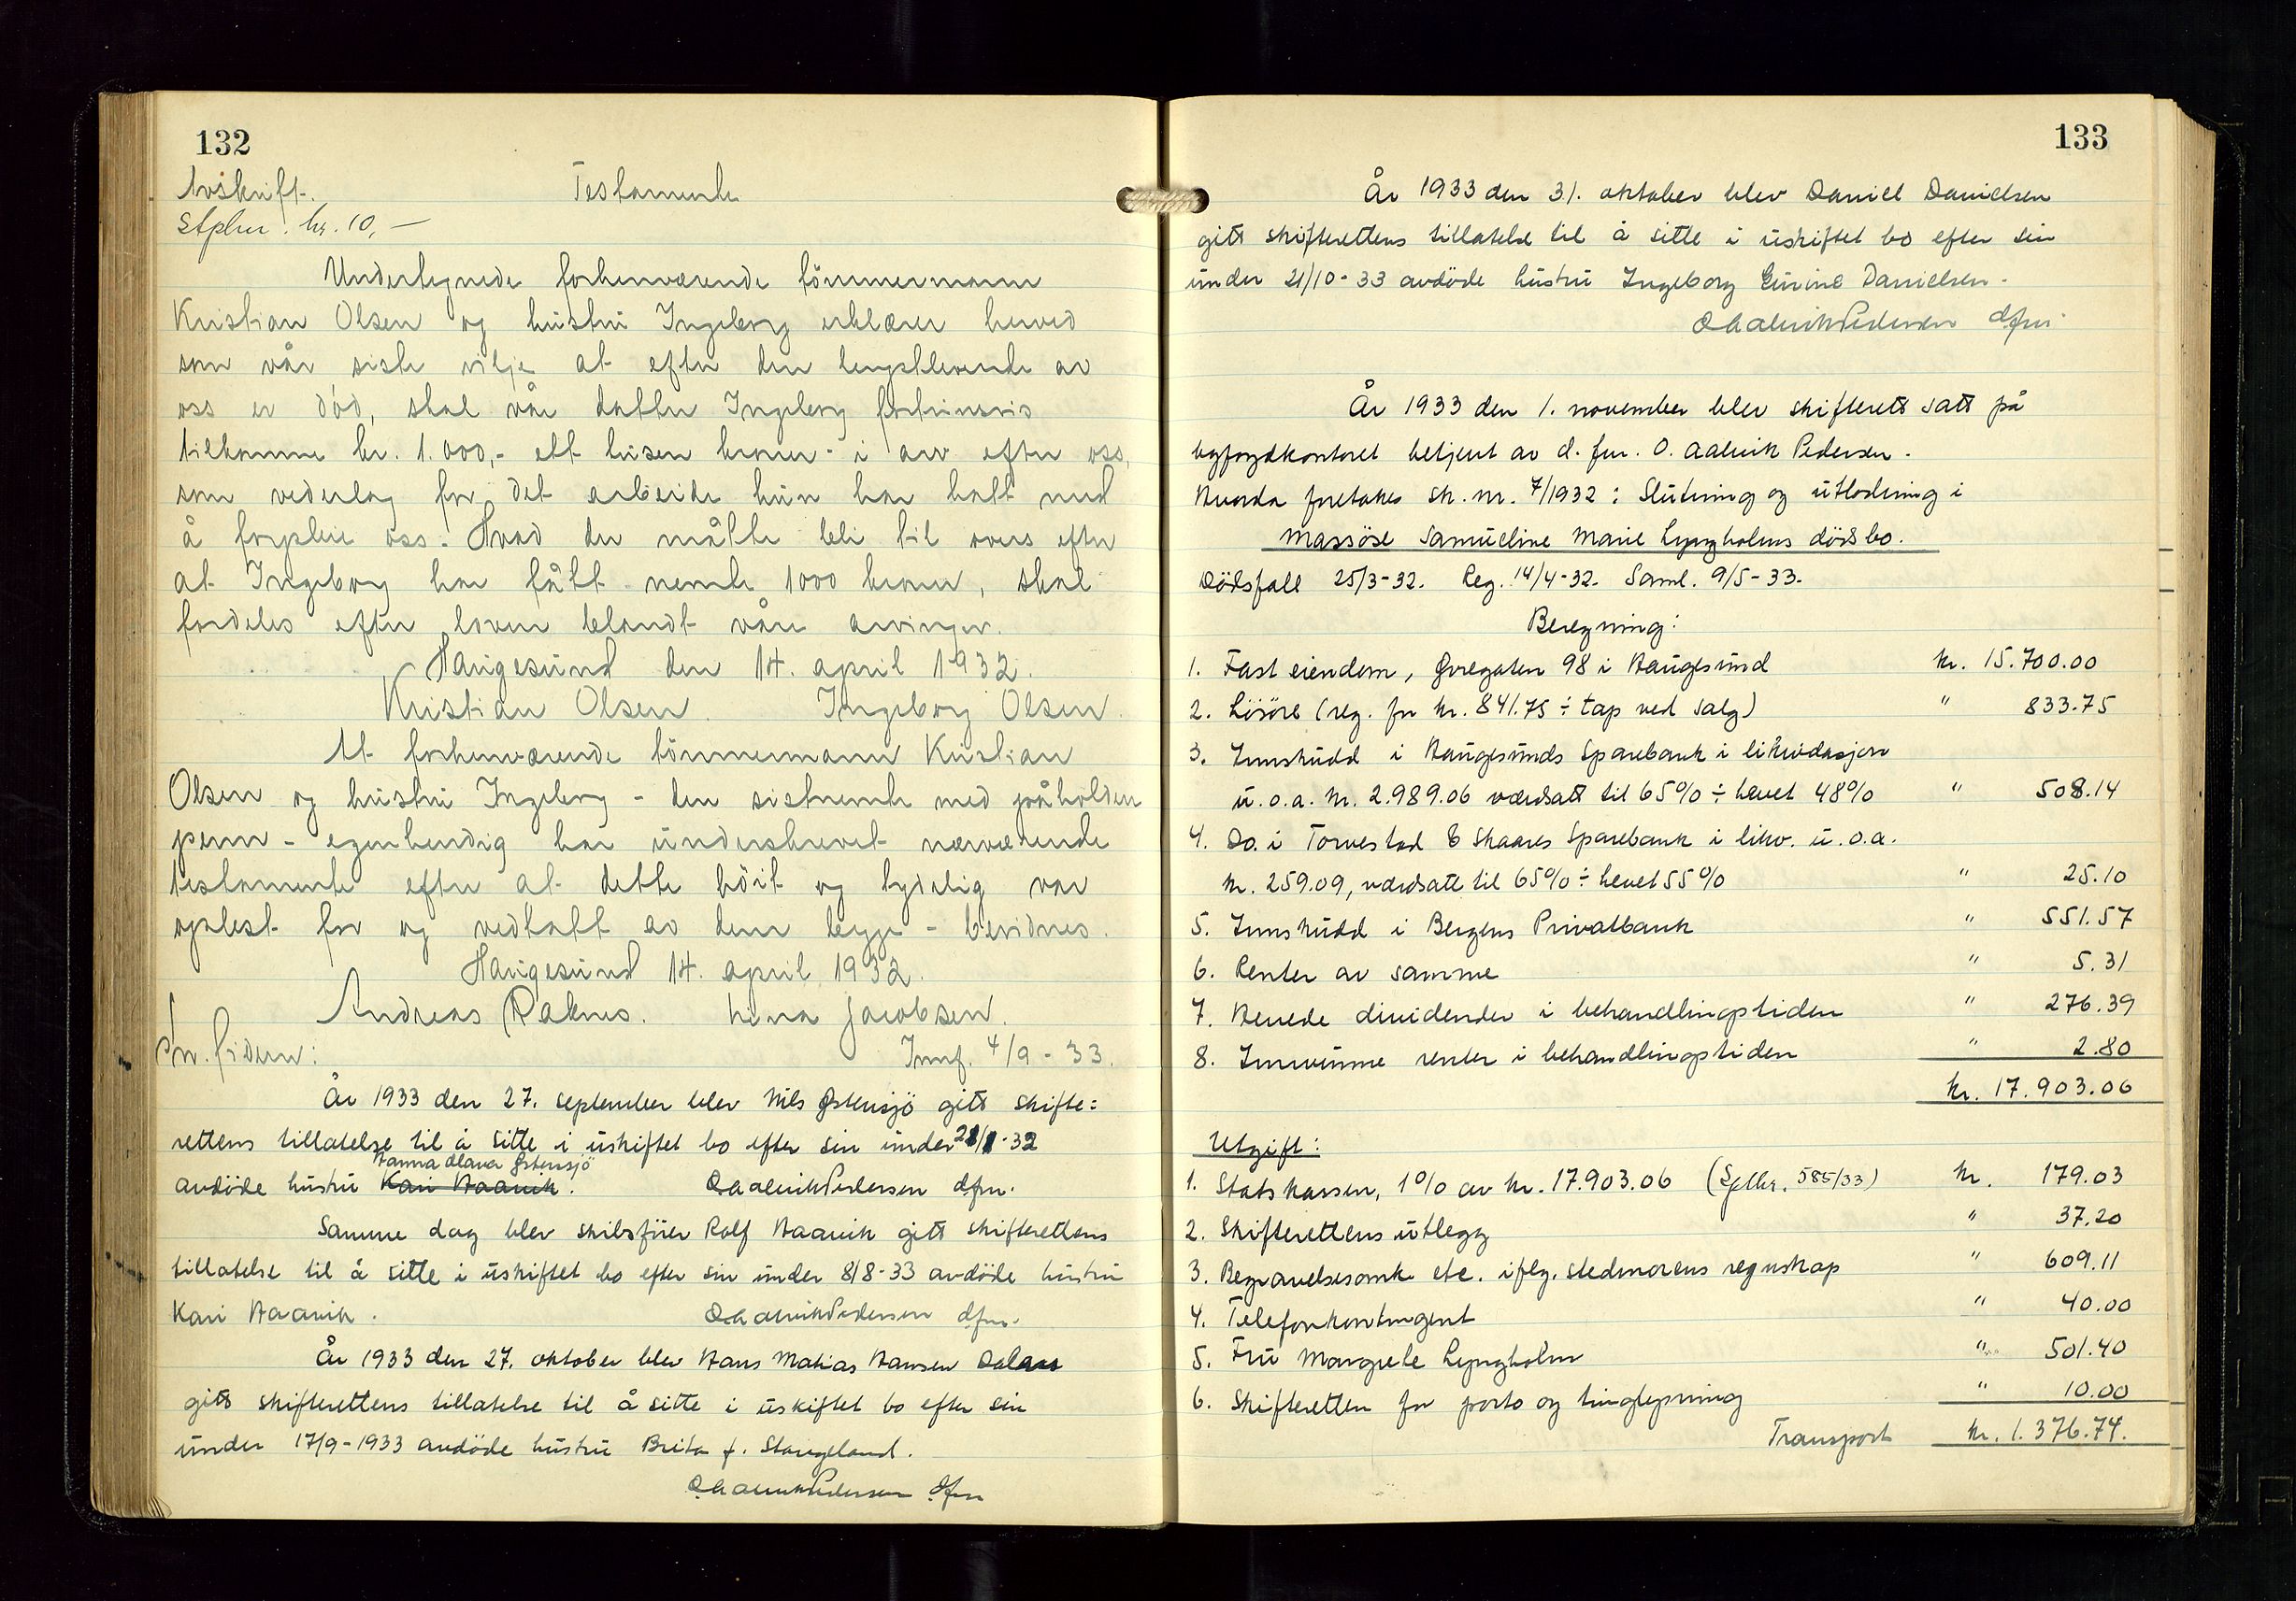 132
Avskrift.
Testamente
Stplm. kr. 10,-
Undertegnede forhenværende tömmermann
Kristian Olsen og hustru Ingeborg erklærer herved
som vår siste vilje at efter den lengstlevende av
oss er död, skal vår datter Ingeborg fortrinsvis
tilkomme kr. 1.000,- ett tusen kroner - i arv efter oss,
som vederlag for det arbeide hun har hatt med
å forpleie oss. Hvad der måtte bli til overs efter
at Ingeborg har fått nevnte 1000 kroner, skal
fordeles efter loven blandt våre arvinger.
Haugesund den 14. april 1932.
Kristian Olsen. Ingeborg Olsen.
At forhenværende tömmermann Kristian
Olsen og hustru Ingeborg - den sistnevnte med påholden
penn - egenhendig har underskrevet nærværende
testamente efter at dette höit og tydelig var
oplest for og vedtatt av dem begge - bevidnes.
Haugesund 14. april 1932.
Andreas Raknes. Lina Jacobsen.
Innf. 4/9 - 33.
År 1933 den 27. september blev Nils Østensjö gitt skifte=
rettens tillatelse til å sitte i uskiftet bo efter sin under 21/1-32
Hanna Olava Østensjö
avdöde hustru Kari Haavik. O Aalvik Pedersen dfm.
Samme dag blev skibsfürer Rolf Haavik gitt skifterettens
tillatelse til å sitte i uskiftet bo efter sin under 8/8-33 avdöde hustru
Kari Haavik. O Aalvik Pedersen dfm.
År 1933 den 27. oktober blev Hans Matias Hansen
gitt skifterettens tillatelse til å sitte i uskiftet bo efter sin
under 17/9-1933 avdöde hustru Brita f. Stangeland.
O Aalvik Pedersen dfm
133
År 1933 den 31. oktober blev Daniel Danielsen
gitt skifterettens tillatelse til å sitte i uskiftet bo efter sin
under 21/10-33 avdöde hustru Ingeborg Gurine Danielsen.
O Aalvik Pedersen dfm.
År 1933 den 1. november blev skifterett satt på
byfogdkontoret betjent av d. fm. O. Aalvik Pedersen.
Hvorda foretokes sk. nr. 7/1932: Slutning og utlodning i
massöse Samueline Marie Lyngholms dödsbo.
Dödsfall 25/3-32. Reg. 14/4-32. Saml. 9/5-33.
Beregning:
1. Fast eiendom, Øvregaten 98 i Haugesund kr. 15.700.00
2. Lösöre (reg. for kr. 841.75 ÷ tap ved salg) " 833.75
3. Innskudd i Haugesunds Sparebank i likvidasjon
u.o.a. kr. 2.989.06 værdsatt til 65% ÷ hevet 48% " 508.14
4. Do. i Torvestad & Skaares Sparebank i likv. u.o.a.
kr. 259.09, værdsatt til 65% ÷ hevet 55% " 25.10
5. Innskudd i Bergens Privatbank " 551.57
6. Renter av samme " 5.31
7. Hevede dividender i behandlingstiden " 276.39
8. Innvunne renter i behandlingstiden " 2.80
kr. 17.903.06
Utgift:
1. Statskassen, 1% av kr. 17.903.06 (Splkr. 585/33) kr. 179.03
2. Skifterettens utlegg " 37.20
3. Begravelsesomk. etc. iflg. stedmorens regnskap " 609.11
4. Telefonkontingent " 40.00
5. Fru Margrete Lyngholm " 501.40
6. Skifteretten for porto og tinglysning " 10.00
Transport kr. 1.376.74.